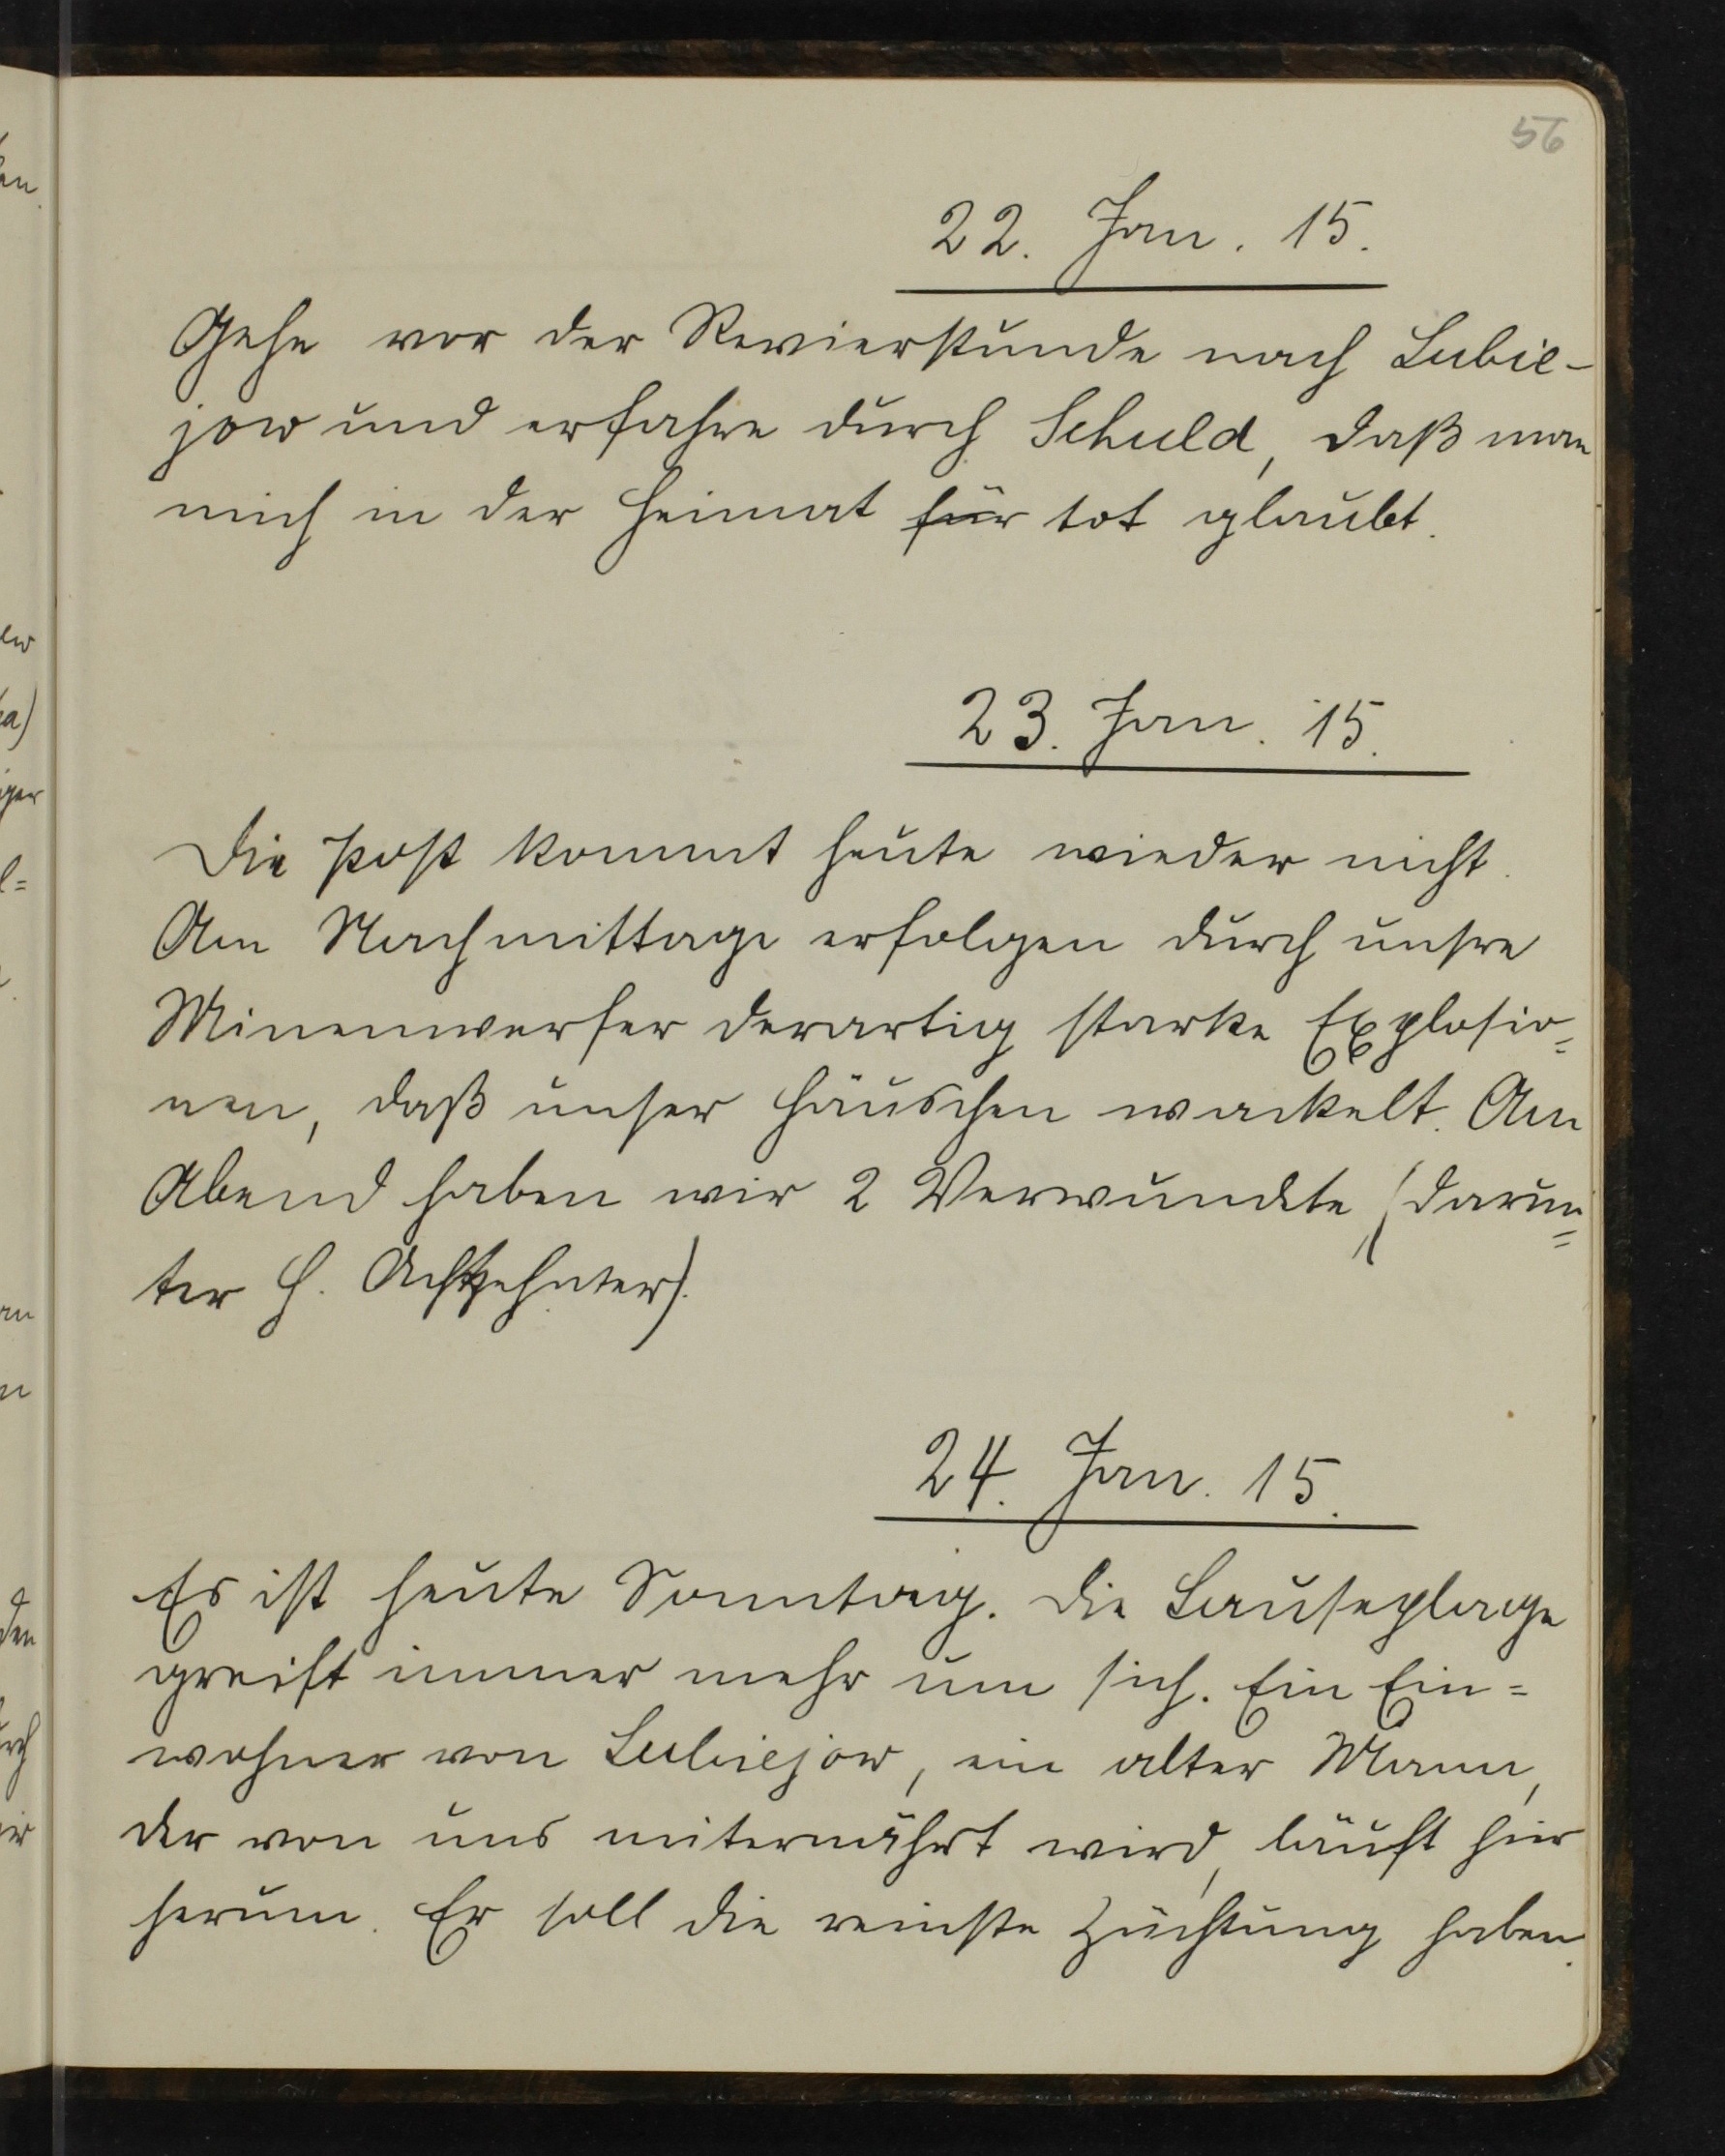 56
22. Jan. 15.
Gehe vor der Revierstunde nach Lubie-
jow und erfahre durch Schuld, daß man
mich in der Heimat für tot glaubt.
23. Jan. 15.
Die Post kommt heute wieder nicht.
Am Nachmittage erfolgen durch unsre
Minenwerfer derartig starke Explosio=
nen, daß unser Häuschen wackelt. Am
Abend haben wir 2 Verwundete (darun=
ter H. Achtzehnter).
24. Jan. 15.
Es ist heute Sonntag. Die Lauseplage
greift immer mehr um sich. Ein Ein=
wohner von Lubiejow, ein alter Mann,
der von uns miternährt wird, läuft hier
herum. Er soll die reinste Züchtung haben.